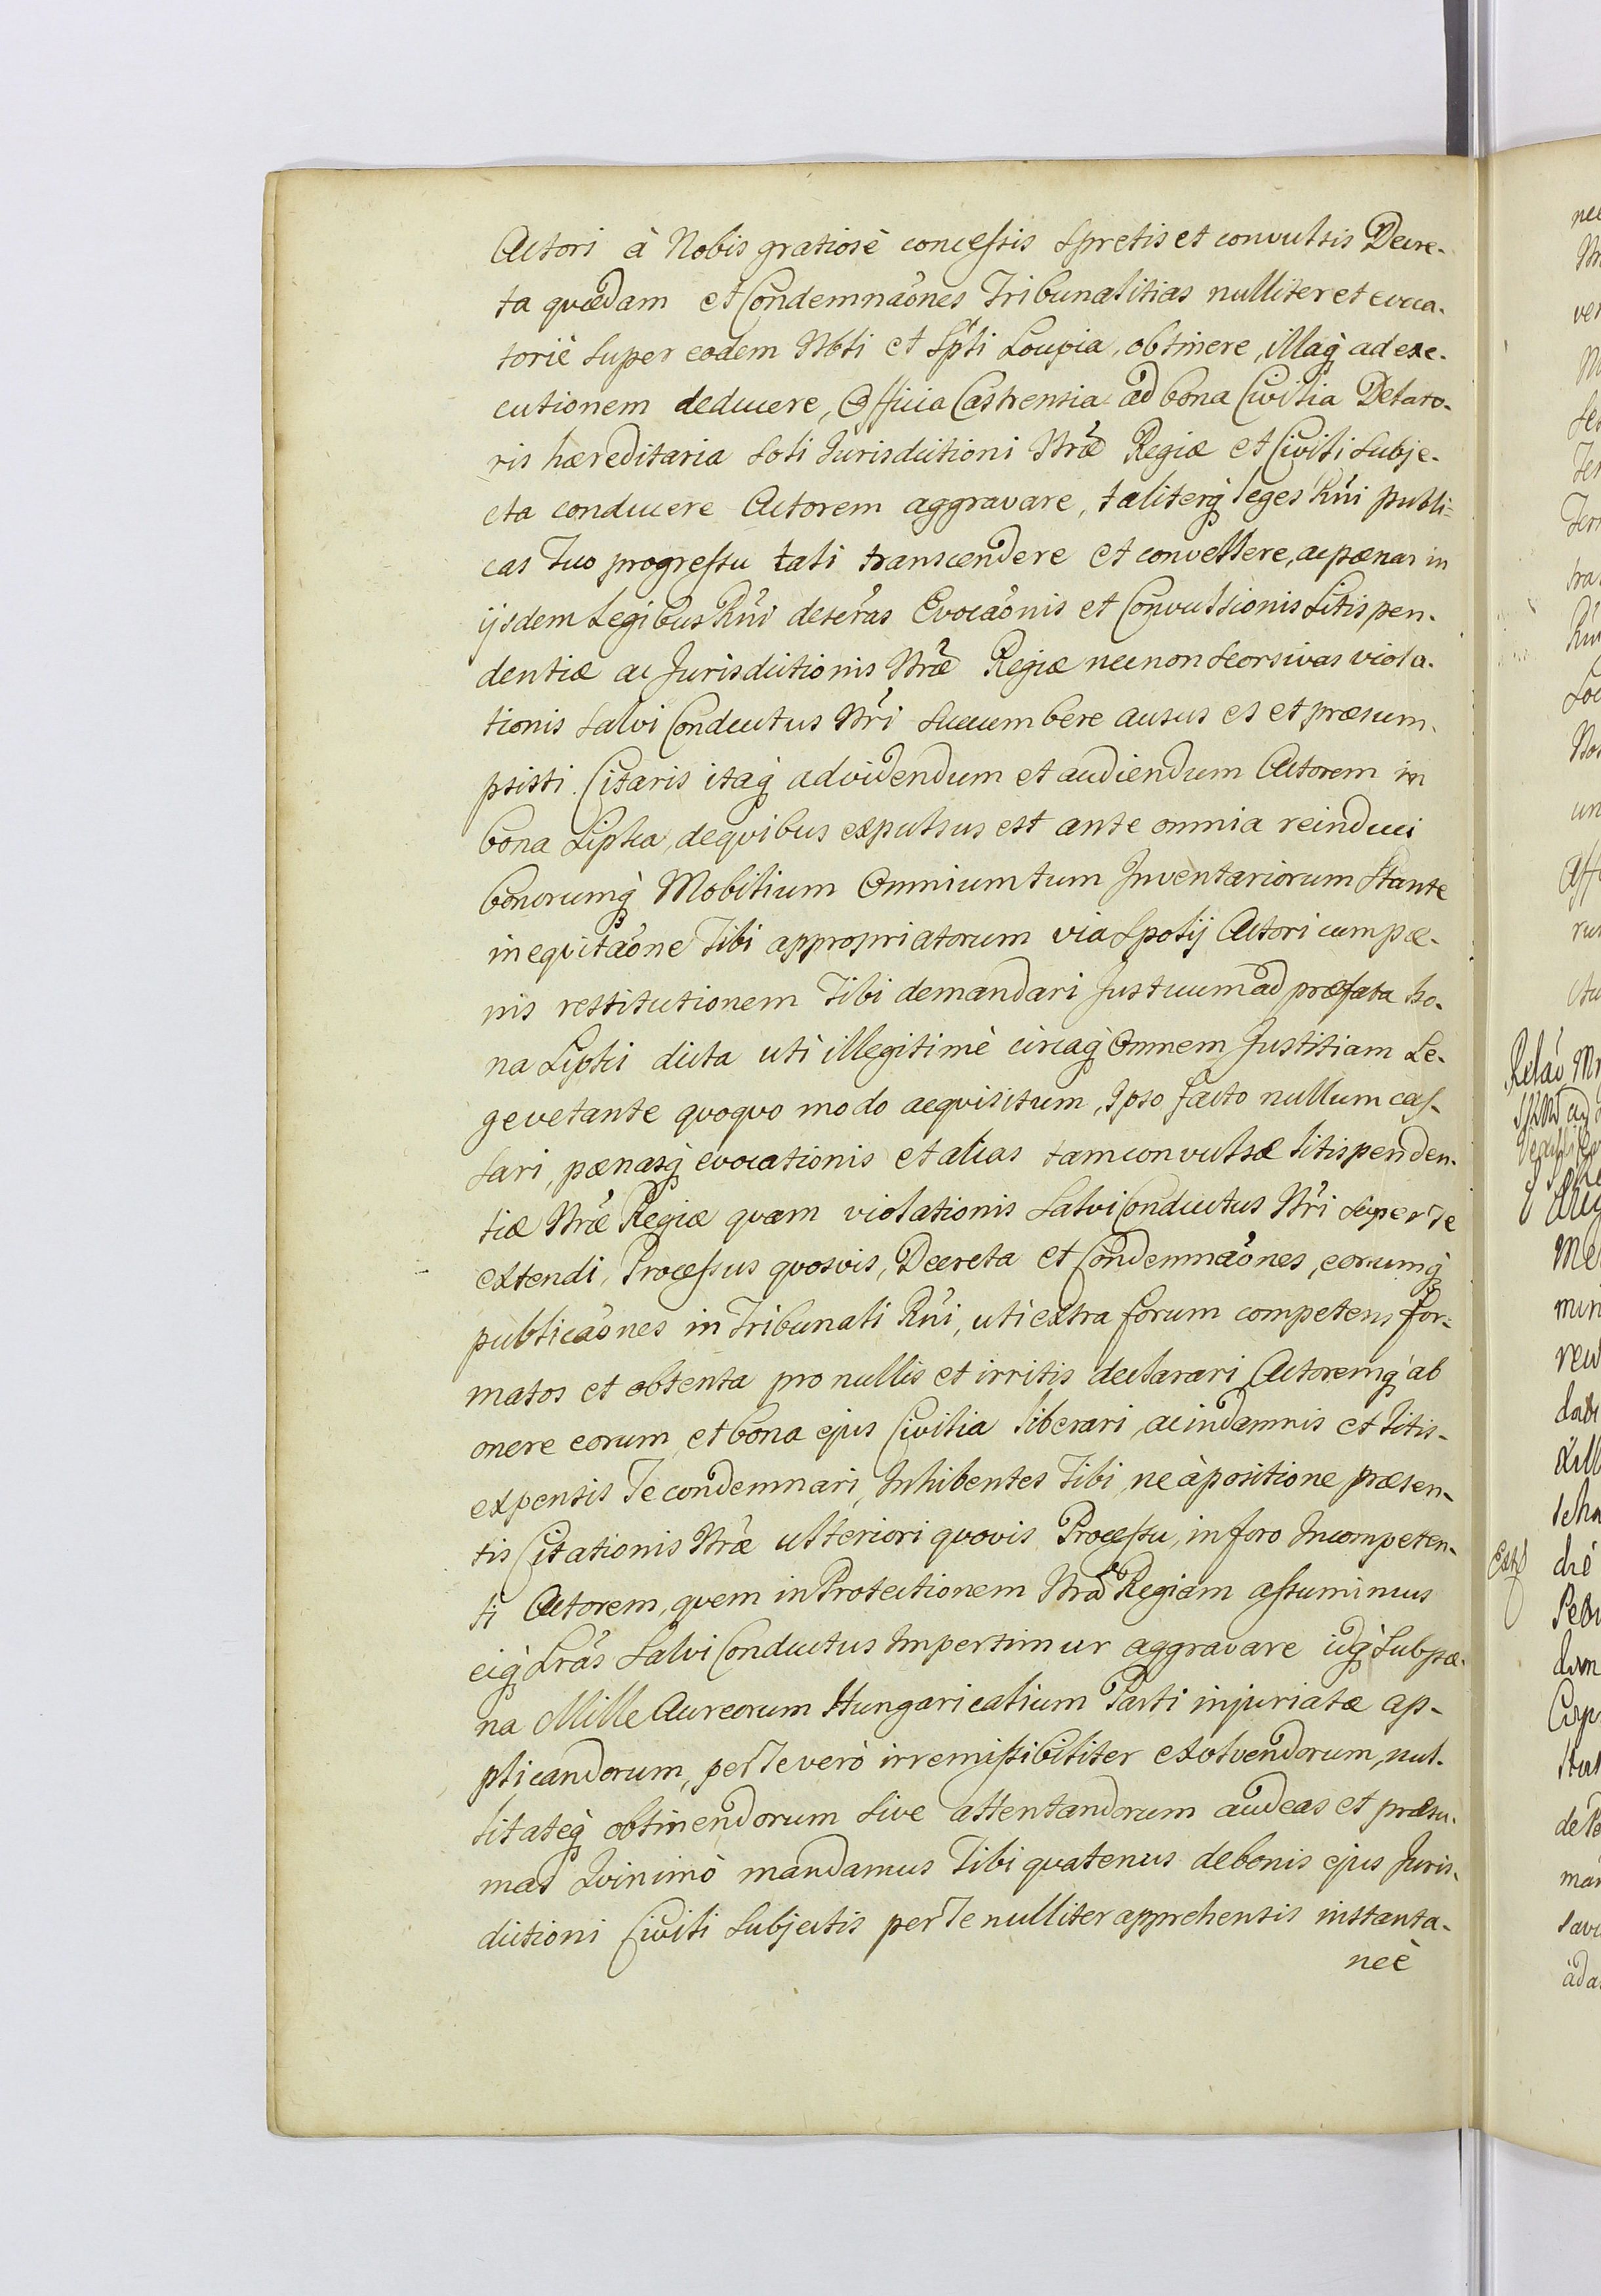 Actori à Nobis gratiosè concessis spretis et convulsis Decre-
ta quædam et Condemnaõnes Tribunalitias nulliter et evoca-
toriè super eodem Nbli et Spti Loupia, obtinere, illaq́ ad exe-
cutionem deducere, Officia Castrensia ad bona Civilia Delato-
ris hæreditaria soli Jurisdictioni Nr̃æ Regiæ et Civili subje-
cta conducere Actorem aggravare, taliterq́ leges Rñi publi=
cas suo progressu tali transcendere et convellere, ac pænas in
ijsdem Legibus Rñi deser̃as Evocaõnis et Convulsionis Litispen-
dentiæ ac Jurisdictionis Nr̃æ Regiæ nec non seorsivas viola-
tionis salvi Conductus Nr̃i succumbere ausus es et præsum-
psisti. Citaris itaq́ ad videndum et audiendum Actorem in
bona Lipka, de qvibus expulsus est ante omnia reinduci
bonorumq́ Mobilium Omnium tum Inventariorum stante
ineqvitaõne Tibi appropriatorum via Spolij Actori cum pæ-
nis restitutionem Tibi demandari Jus tuum ad præfata bo-
na Lipki dicta uti illegitimè circaq́ Omnem Justitiam Le-
ge vetante qvoqvo modo acqvisitum, Ipso facto nullum cas-
sari, pænasq́ evocationis et alias tam convulsæ litispenden-
tiæ Nr̃æ Regiæ qvam violationis salvi Conductus Nr̃i super Te
extendi, Processus qvosvis, Decreta et Condemnaõnes, eorumq́
publicaõnes in Tribunali Rñi, uti extra forum competens for=
matos et obtenta pro nullis et irritis declarari Actoremq́ ab
onere eorum et bona ejus Civilia liberari, ac in damnis et litis-
expensis Te condemnari, Inhibentes Tibi, ne à positione præsen-
tis Citationis Nr̃æ ulteriori qvovis Processu, in foro Incompeten-
ti Actorem, qvem in Protectionem Nr̃ã Regiam assumimus
eiq́ Lr̃as salvi Conductus Impertimur aggravare idq́ sub pæ-
na Mille Aureorum Hungaricalium Parti injuriatæ ap-
plicandorum, per Te verò irremissibiliter exolvendorum, nul-
litateq́ obtinendorum sive attentandorum audeas et præsu-
mas Qvinimò mandamus Tibi qvatenus de bonis ejus Juris-
dictioni Civili subjectis per Te nulliter apprehensis instanta-
neè